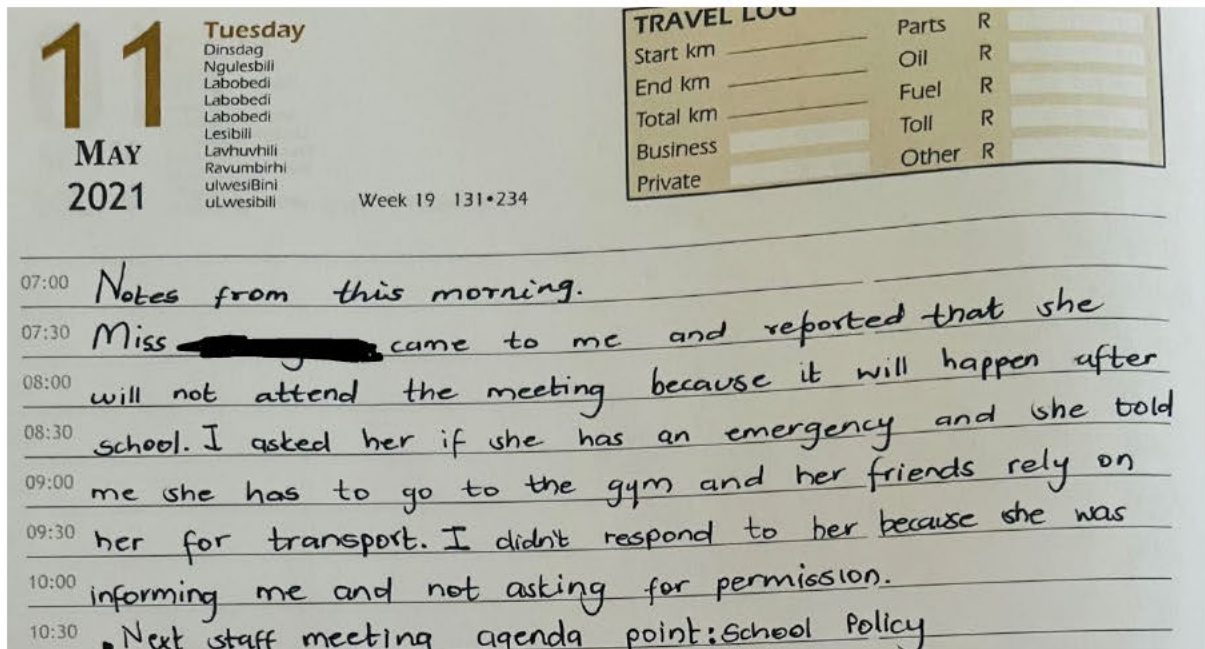 11
Tuesday
Dinsdag
Ngulesbili
Labobedi
Labobedi
Labobedi
Lesibili
Lavhuvhili
Ravumbirhi
ulwesiBini
uLwesibili
MAY
2021
Week 19 131•234
TRAVEL LOG
Start km
End km
Total km
Business
Private
Parts R
Oil R
Fuel R
Toll R
Other R
07:00 Notes from this morning.
07:30 Miss came to me and reported that she
08:00 will not attend the meeting because it will happen after
08:30 school. I asked her if she has an emergency and she told
09:00 me she has to go to the gym and her friends rely on
09:30 her for transport. I didn't respond to her because she was
10:00 informing me and not asking for permission.
10:30 • Next staff meeting agenda point: School Policy